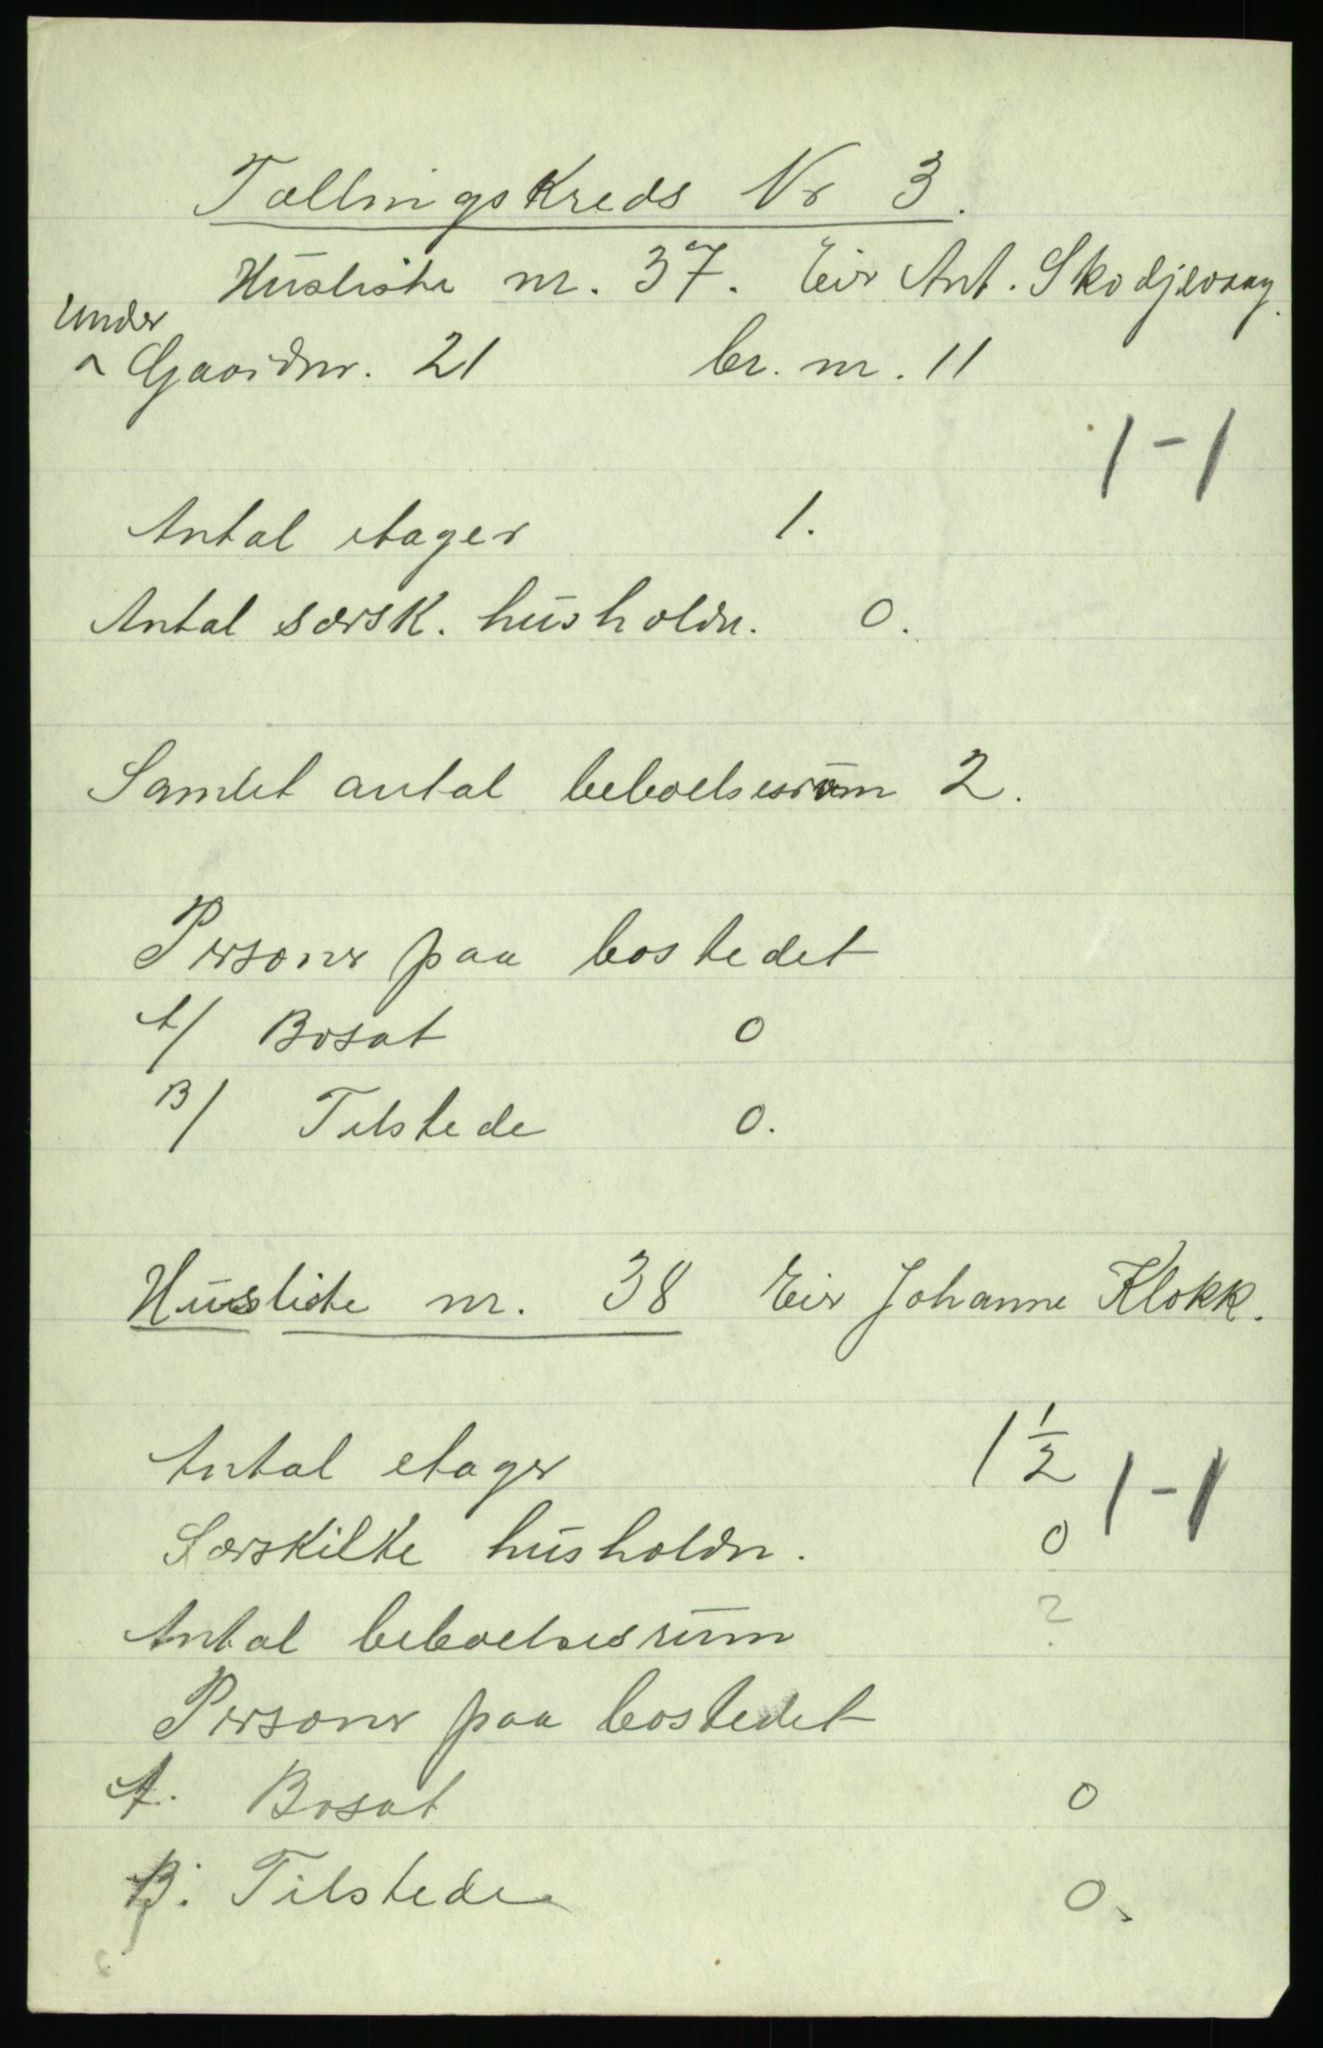 Tællingskreds Nr 3.
Husliste nr. 37. Eier Ant. Skodjevaag.
under
^ Gaardnr. 21 br. nr. 11
1-1
Antal etager 1.
Antal særsk. husholdn. 0.
Samlet antal beboelsesrum 2.
Personer paa bostedet
A/ Bosat 0
B/ Tilstede 0.
Husliste nr. 38 Eier Johanne Klokk.
Antal etager 1 1/2
1-1
Særskilte husholdn. 0
Antal beboelsesrum ?
Personer paa bostedet
A. Bosat 0
B. Tilstede 0.